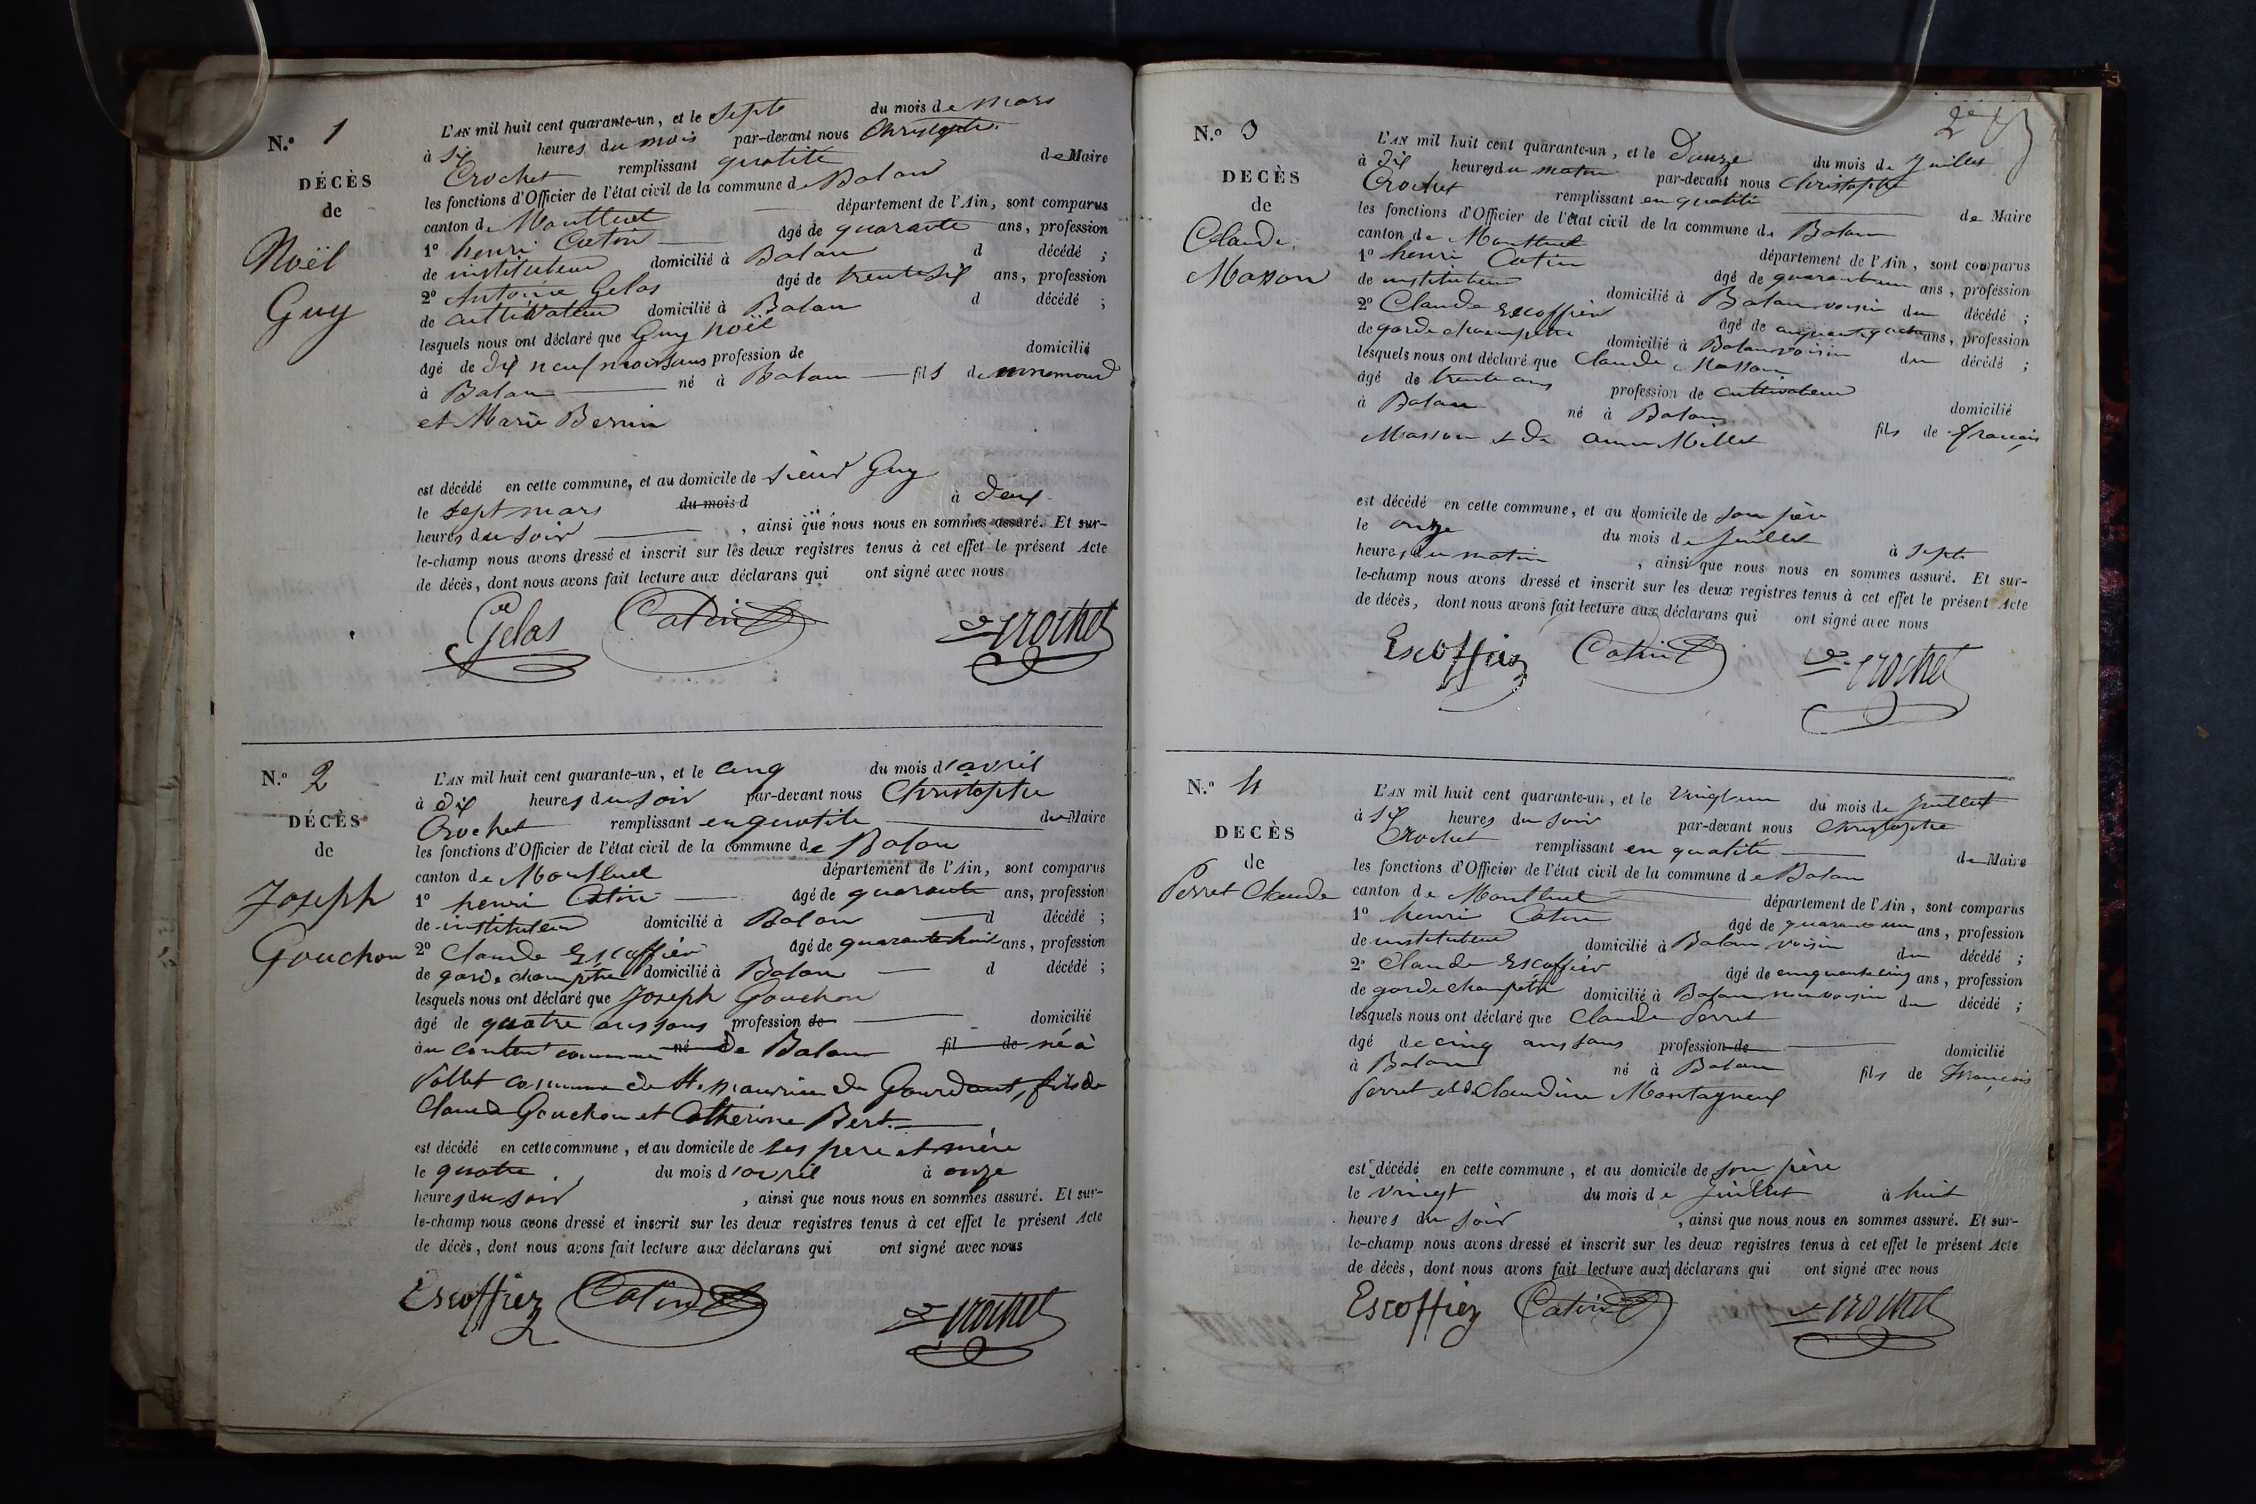 N.o 1
DÉCÈS
de
Noël
Guy
L'AN mil huit cent quarante-un, et le Septe du mois de Mars
à Six heures du mois par-devant nous Christophe
Crochet remplissant quatité de Maire
les fonctions d'Officier de l'état civil de la commune de Balan
canton de Montluel département de l'Ain, sont comparus
1o henri Catin âgé de quarante ans, profession
de instituteur domicilié à Balan d décédé ;
2o Antoine Gelas âgé de trente Six ans, profession
de cultivateur domicilié à Balan d décédé ;
lesquels nous ont déclaré que Guy Noël
âgé de dix neuf mois sans profession de domicilié
à Balan né à Balan fils de
et Marie Bernin
est décédé en cette commune, et au domicile de Sieur Guy
le Sept mars du mois d à deux
heures du Soir , ainsi que nous nous en sommes assuré. Et sur-
le-champ nous avons dressé et inscrit sur les deux registres tenus à cet effet le présent Acte
de décès, dont nous avons fait lecture aux déclarans qui ont signé avec nous
Gelas Catin Crochet
N.o 2
DÉCÈS
de
Joseph
Gouchon
L'AN mil huit cent quarante-un, et le cinq du mois d'avril
à dix heures du Soir par-devant nous Christophe
Crochet remplissant en quatité du Maire
les fonctions d'Officier de l'état civil de la commune de Balan
canton de Montluel département de l'Ain, sont comparus
1o henri Catin âgé de quarante ans, profession
de instituteur domicilié à Balan d décédé ;
2o Claude Escoffier âgé de quarante huit ans, profession
de garde champêtre domicilié à Balan d décédé ;
lesquels nous ont déclaré que Joseph Gouchon
âgé de quatre ans sans profession de domicilié
au commune né de Balan fil de né à
Pollet commune de St Maurice de Gourdans, fils de
Claude Gouchon et Catherine Bert.
est décédé en cette commune, et au domicile de Ses pere et mère
le quatre du mois d'avril à onze
heures du Soir , ainsi que nous nous en sommes assuré. Et sur-
le-champ nous avons dressé et inscrit sur les deux registres tenus à cet effet le présent Acte
de décès, dont nous avons fait lecture aux déclarans qui ont signé avec nous
Escoffier Catin Crochet
2e
N.o 3
DECÈS
de
Claude
Masson
L'AN mil huit cent quarante-un, et le Douze du mois de Juillet
à dix heures du matin par-devant nous Christophe
Crochet remplissant en quatité de Maire
les fonctions d'Officier de l'état civil de la commune de Balan
canton de Montluel département de l'Ain, sont comparus
1o henri Catin âgé de quarante un ans, profession
de instituteur domicilié à Balan voisin du décédé ;
2o Claude Escoffier âgé de ans, profession
de garde champetre domicilié à Balan voisin du décédé ;
lesquels nous ont déclaré que Claude Masson
âgé de trente ans profession de cultivateur domicilié
à Balan né à Balan fils de français
Masson et de anne Millet
est décédé en cette commune, et au domicile de son père
le onze du mois de Juillet à Sept
heures du matin , ainsi que nous nous en sommes assuré. Et sur-
le-champ nous avons dressé et inscrit sur les deux registres tenus à cet effet le présent Acte
de décès, dont nous avons fait lecture aux déclarans qui ont signé avec nous
Escoffier Catin Crochet
N.o 4
DECÈS
de
Perret Claude
L'AN mil huit cent quarante-un, et le Vingt un du mois de Juillet
à six heures du Soir par-devant nous Christophe
Crochet remplissant en quatité de Maire
les fonctions d'Officier de l'état civil de la commune de Balan
canton de Montluel département de l'Ain, sont comparus
1o henri Catin âgé de quarante un ans, profession
de instituteur domicilié à Balan voisin du décédé ;
2o Claude Escoffier âgé de cinquante cinq ans, profession
de garde champetre domicilié à Balan voisin du décédé ;
lesquels nous ont déclaré que Claude Perret
âgé de cinq ans sans profession de domicilié
à Balan né à Balan fils de François
Perret et de Claudine Montagneux
est décédé en cette commune, et au domicile de son père
le vingt du mois de Juillet à huit
heures du Soir , ainsi que nous nous en sommes assuré. Et sur-
le-champ nous avons dressé et inscrit sur les deux registres tenus à cet effet le présent Acte
de décès, dont nous avons fait lecture aux déclarans qui ont signé avec nous
Escoffier Catin Crochet